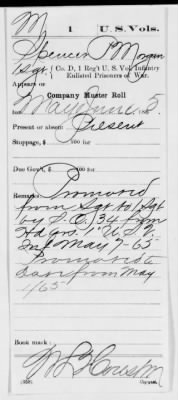 M 1 U.S. Vols.
Spencer P Morgan
1 Sgt., Co. D, 1 Reg't U. S. Vol. Infantry
Enlisted Prisoners of War.
Appears on
Company Muster Roll
for May & June, 1865.
Present or absent: Present
Stoppage, $ 100 for
Due Gov't, $ 100 for
Remarks: Promoted
from Sgt to 1 Sgt
by S.O. 34 from
Hd qrs 1" U.S.V.
Inf May 7 65
Promoted to
date from May
1/65
Book mark:
(358) Copyist.